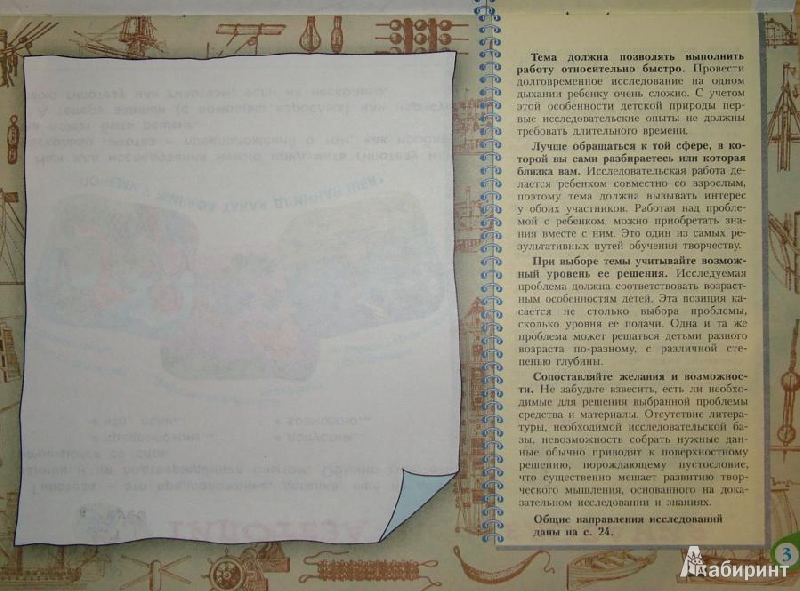 Тема должна позволять выполнить
работу относительно быстро. Провести
долговременное исследование на одном
дыхании ребенку очень сложно. С учетом
этой особенности детской природы пер-
вые исследовательские опыты не должны
требовать длительного времени.
Лучше обращаться к той сфере, в ко-
торой вы сами разбираетесь или которая
близка вам. Исследовательская работа де-
лается ребенком совместно со взрослым,
поэтому тема должна вызывать интерес
у обоих участников. Работая над пробле-
мой с ребенком, можно приобретать зна-
ния вместе с ним. Это один из самых ре-
зультативных путей обучения творчеству.
При выборе темы учитывайте возмож-
ный уровень ее решения. Исследуемая
проблема должна соответствовать возраст-
ным особенностям детей. Эта позиция ка-
сается не столько выбора проблемы,
сколько уровня ее подачи. Одна и та же
проблема может решаться детьми разного
возраста по-разному, с различной сте-
пенью глубины.
Сопоставляйте желания и возможнос-
ти. Не забудьте взвесить, есть ли необхо-
димые для решения выбранной проблемы
средства и материалы. Отсутствие литера-
туры, необходимой исследовательской ба-
зы, невозможность собрать нужные дан-
ные обычно приводят к поверхностному
решению, порождающему пустословие,
что существенно мешает развитию твор-
ческого мышления, основанного на дока-
зательном исследовании и знаниях.
Общие направления исследований
даны на с. 24.
3
Лабиринт